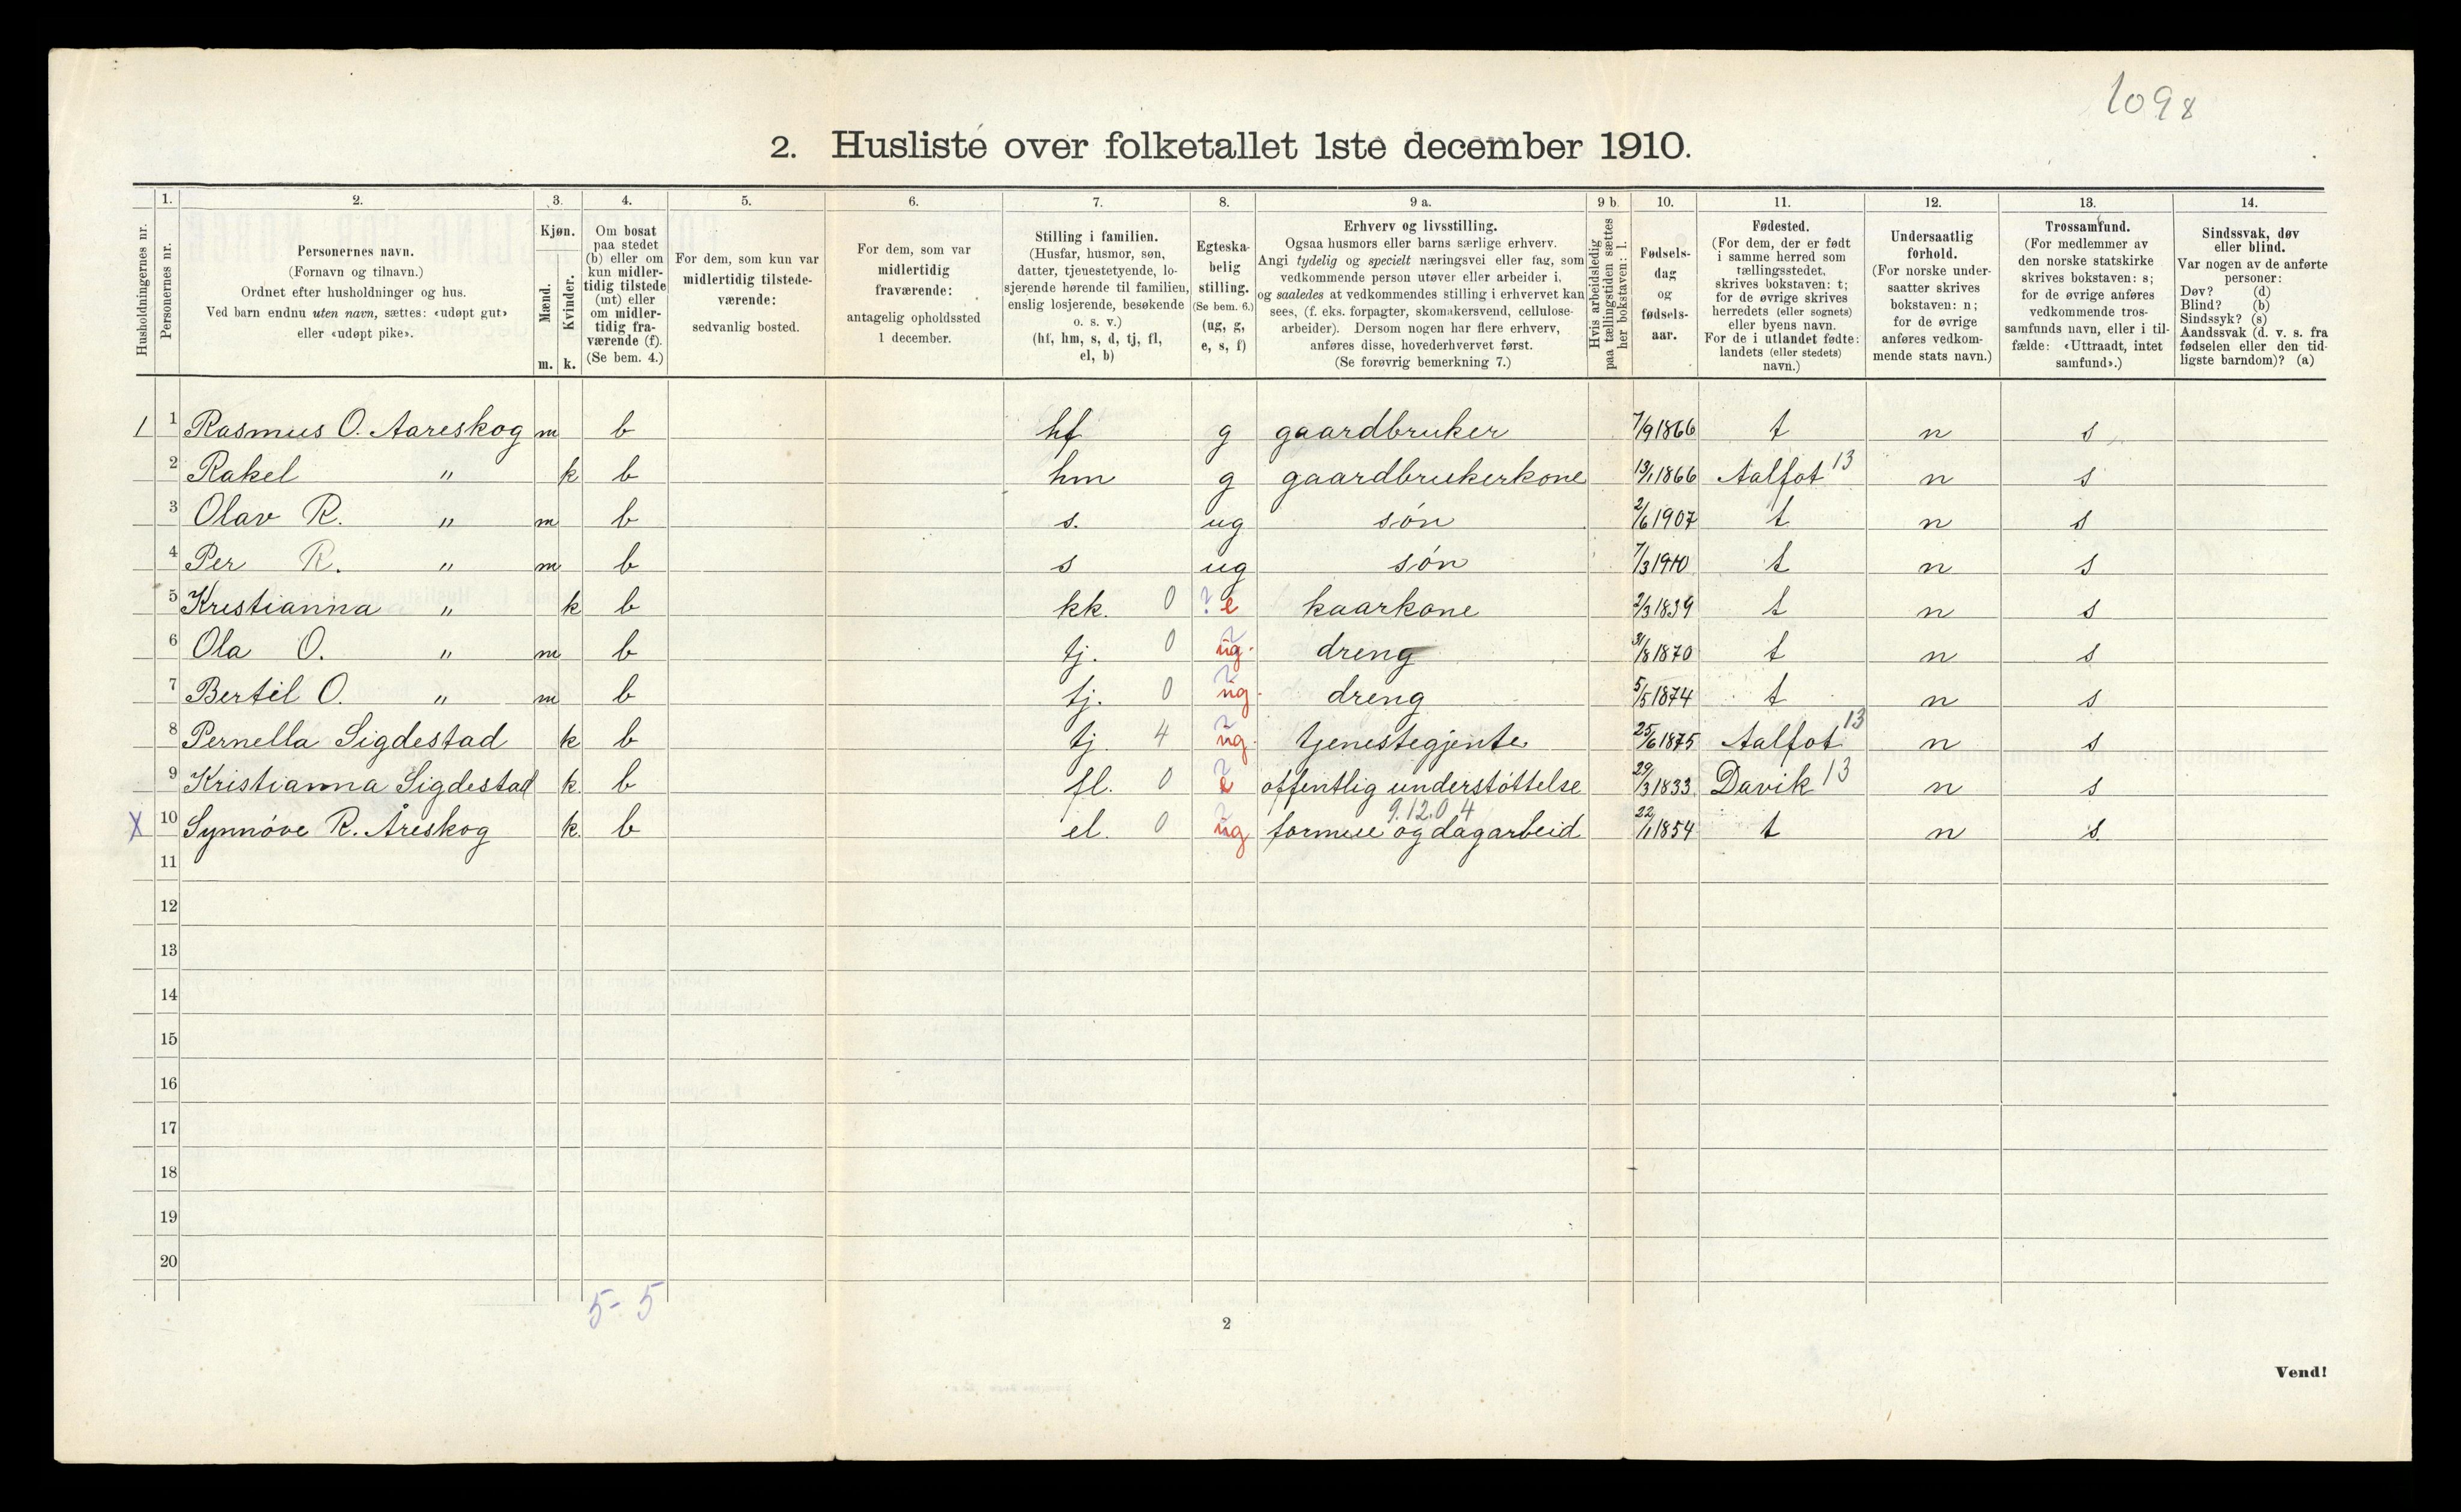 1098
2. Husliste over folketallet 1ste december 1910.
Husholdningernes nr.
1.
Personernes nr.
2.
Personernes navn.
(Fornavn og tilnavn.)
Ordnet efter husholdninger og hus.
Ved barn endnu uten navn, sættes: «udøpt gut»
eller «udøpt pike».
3.
Kjøn.
Mænd.
Kvinder.
m. k.
4.
Om bosat
paa stedet
(b) eller om
kun midler-
tidig tilstede
(mt) eller
om midler-
tidig fra-
værende (f).
(Se bem. 4.)
5.
For dem, som kun var
midlertidig tilstede-
værende:
sedvanlig bosted.
6.
For dem, som var
midlertidig
fraværende:
antagelig opholdssted
1 december.
7.
Stilling i familien.
(Husfar, husmor, søn,
datter, tjenestetyende, lo-
sjerende hørende til familien,
enslig losjerende, besøkende
o. s. v.)
(hf, hm, s, d, tj, fl,
el, b)
8.
Egteska-
belig
stilling.
(Se bem. 6.)
(ug, g,
e, s, f)
9 a.
Erhverv og livsstilling.
Ogsaa husmors eller barns særlige erhverv.
Angi tydelig og specielt næringsvei eller fag, som
vedkommende person utøver eller arbeider i,
og saaledes at vedkommendes stilling i erhvervet kan
sees, (f. eks. forpagter, skomakersvend, cellulose-
arbeider). Dersom nogen har flere erhverv,
anføres disse, hovederhvervet først.
(Se forøvrig bemerkning 7.)
9 b.
Hvis arbeidsledig
paa tællingstiden sættes
her bokstaven: l.
10.
Fødsels-
dag
og
fødsels-
aar.
11.
Fødested.
(For dem, der er født
i samme herred som
tællingsstedet,
skrives bokstaven: t;
for de øvrige skrives
herredets (eller sognets)
eller byens navn.
For de i utlandet fødte:
landets (eller stedets)
navn.)
12.
Undersaatlig
forhold.
(For norske under-
saatter skrives
bokstaven: n;
for de øvrige
anføres vedkom-
mende stats navn.)
13.
Trossamfund.
(For medlemmer av
den norske statskirke
skrives bokstaven: s;
for de øvrige anføres
vedkommende tros-
samfunds navn, eller i til-
fælde: «Uttraadt, intet
samfund».)
14.
Sindssvak, døv
eller blind.
Var nogen av de anførte
personer:
Døv? (d)
Blind? (b)
Sindssyk? (s)
Aandssvak (d. v. s. fra
fødselen eller den tid-
ligste barndom)? (a)
1 1 Rasmus O. Aareskog m b hf g gaardbruker 7/9 1866 t n s
2 Rakel " k b hm g gaardbrukerkone 13/1 1866 Aalfot 13 n s
3 Olav R. " m b s. ug són 2/6 1907 t n s
4 Per R. " m b s ug són 7/3 1910 t n s
5 Kristianna " k b kk. 0 ? e kaarkone 2/3 1839 t n s
6 Ola O. " m b tj. 0 ug. dreng 31/8 1870 t n s
7 Bertil O. " m b tj. 0 ug. dreng 5/5 1874 t n s
8 Pernella Sigdestad k b tj 4 ug. tjenestegjente 25/6 1875 Aalfot 13 n s
9 Kristianna Sigdestad k. b fl. 0 e offentlig understóttelse 29/3 1833 Davik 13 n s
9.12.04
X 10 Synnóve R. Åreskog k. b el. 0 ug formue og dagarbeid 22/1 1854 t n s
11
12
13
14
15
16
17
18
19
20
5 - 5
2
Vend!